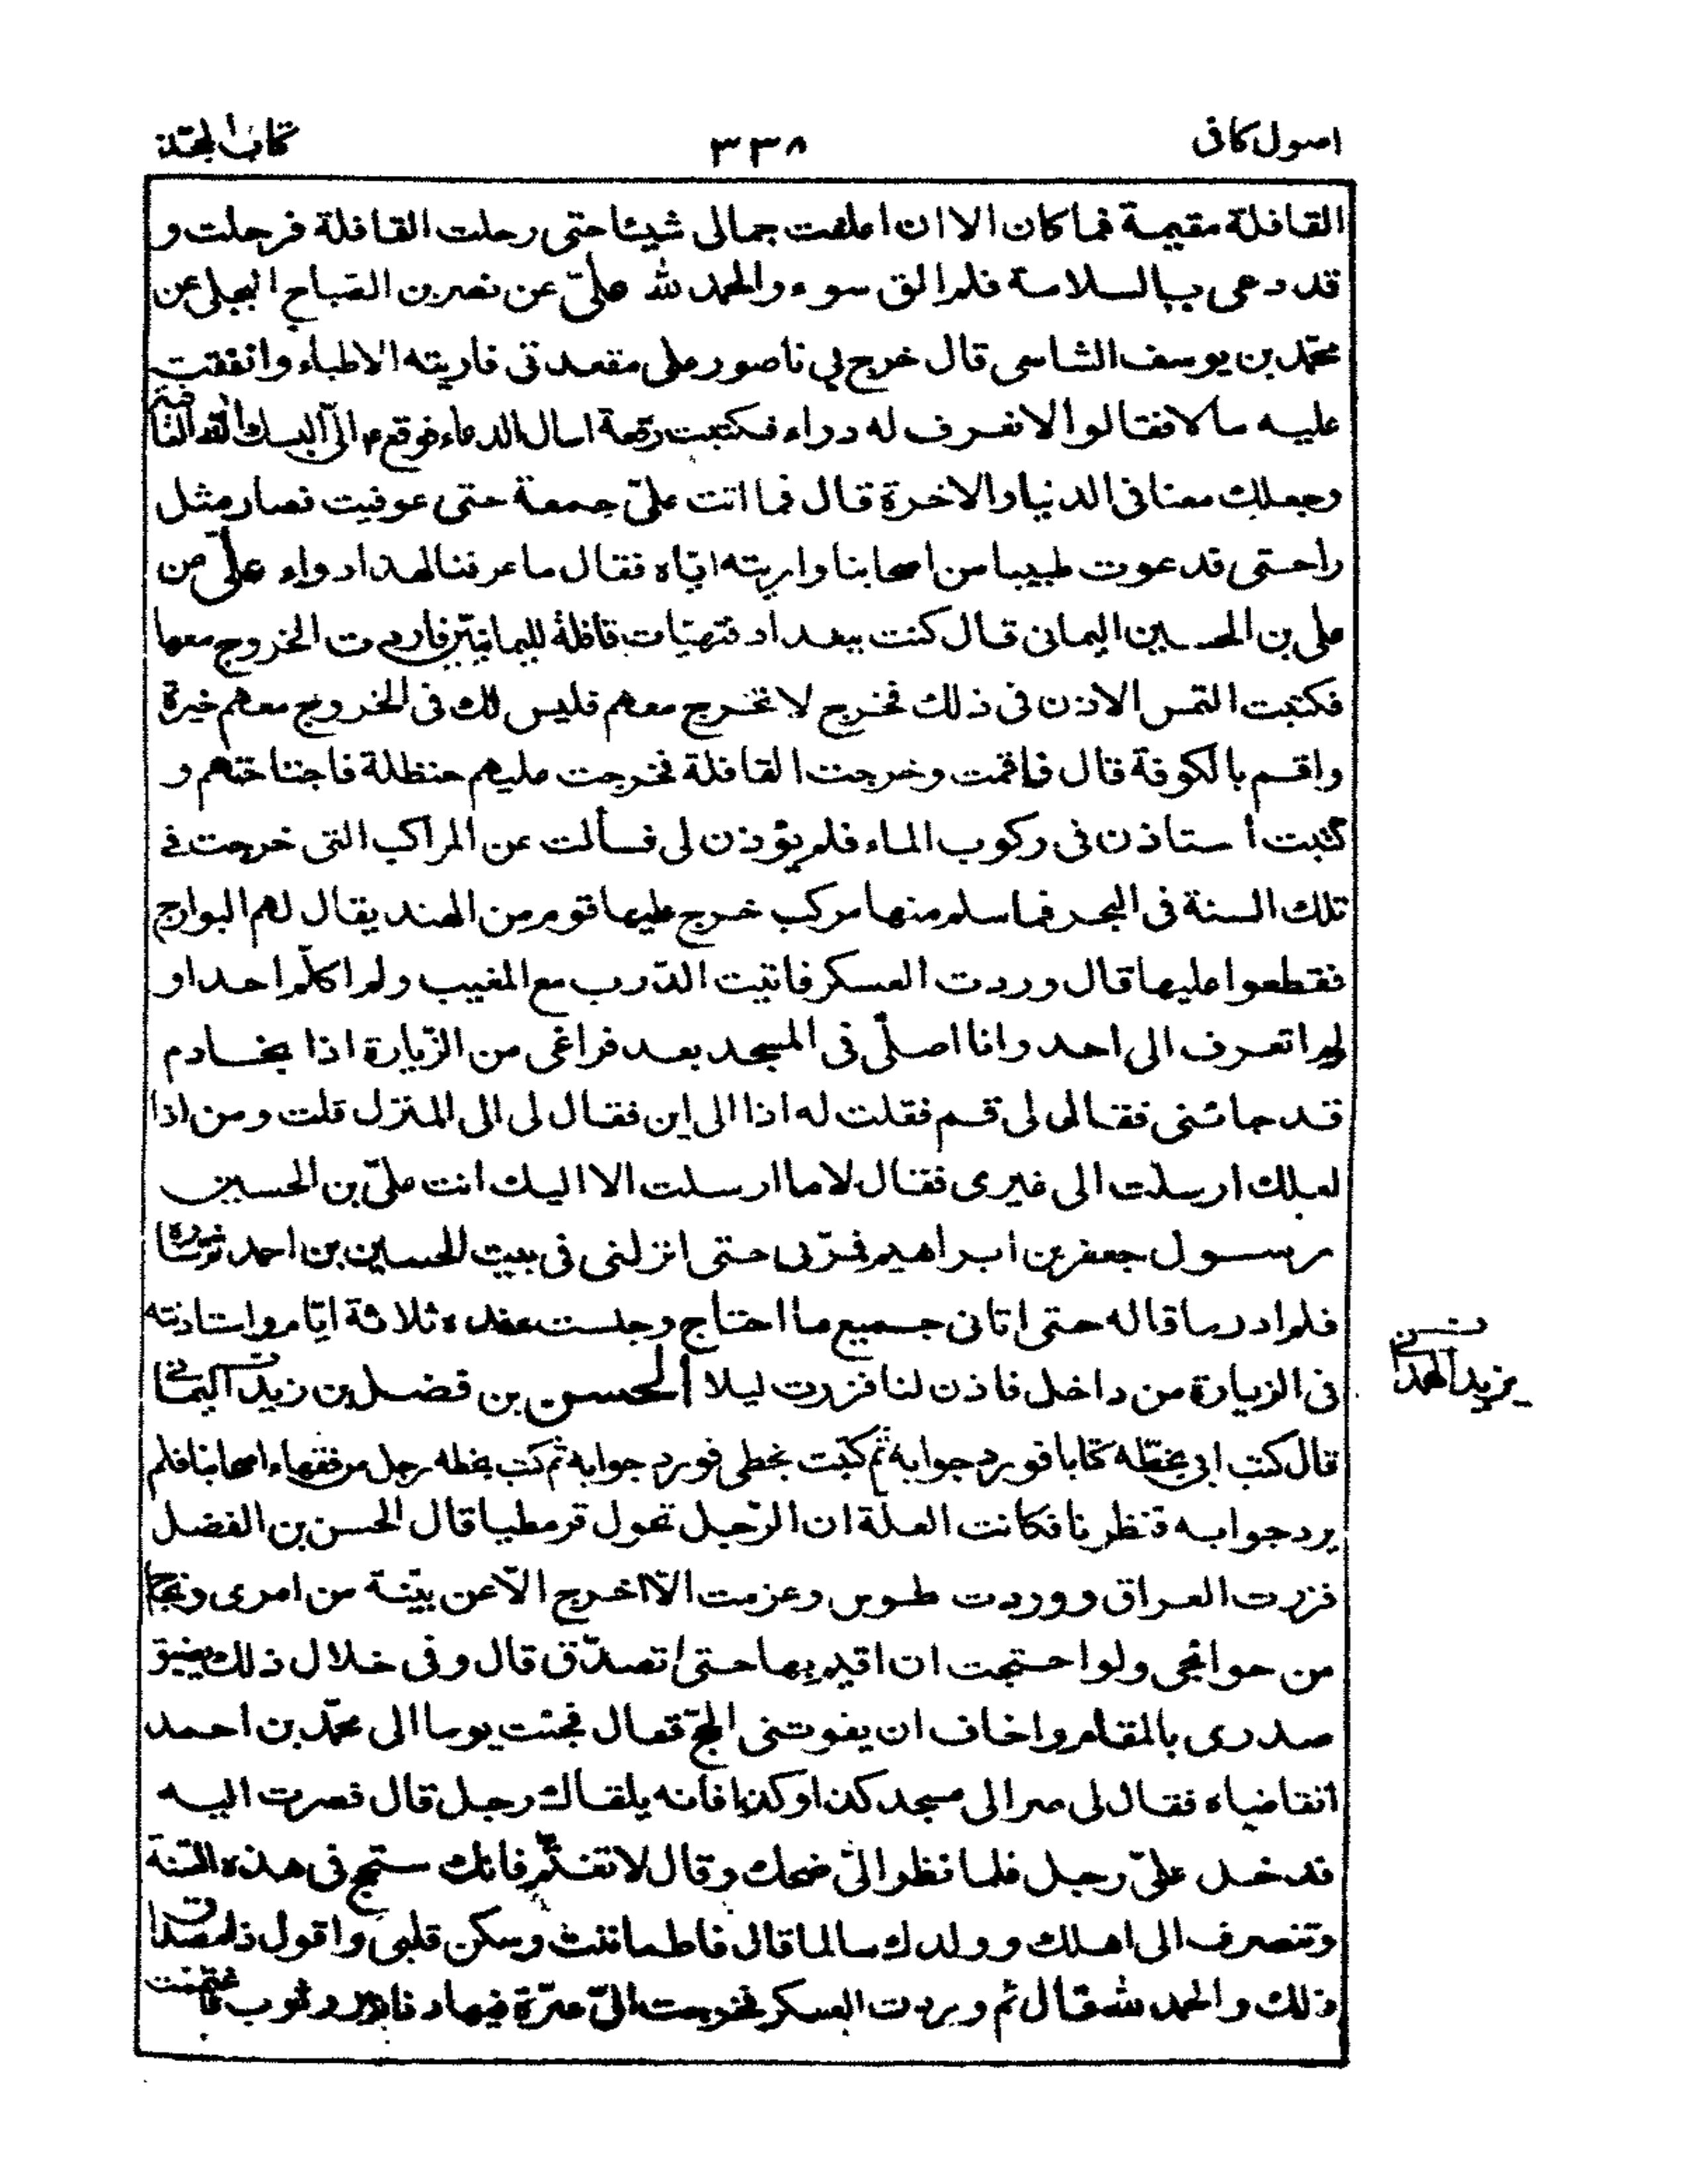 اصول کافی
٣٣٨
کتاب الحجّة
القافلة مقیمة فما کان الا ان اعلفت جمالی شیئا حتی رحلت القافلة فرحلت و
قد دعی لی بالسلامة فلم الق سوء والحمد لله علیّ عن نصر بن الصّباح البجلی عن
محمّد بن یوسف الشاسی قال خرج بی ناصور علی مقعدتی فاریته الاطباء وانفقت
علیه مالا فقالوا لانعرف له دواء فکتبت رقعة اسال الدعاء فوقع ع الیّ البسك الله العافیة
وجعلك معنا فی الدنیا والاخرة قال فما اتت علیّ جمعة حتی عوفیت فصار مثل
راحتی فدعوت طبیبا من اصحابنا واریته ایّاه فقال ما عرفنا لهذا دواء علیّ عن
علی بن الحسین الیمانی قال کنت ببغداد فتهیّات قافلة للیمانیّین فاردت الخروج معها
فکتبت التمس الاذن فی ذلك فخرج لا تخرج معهم فلیس لك فی الخروج معهم خیرة
واقم بالکوفة قال فاقمت وخرجت القافلة فخرجت علیهم حنظلة فاجتاحتهم و
کتبت أستاذن فی رکوب الماء فلم یؤذن لی فسألت عن المراکب التی خرجت فی
تلك السنة فی البحر فما سلم منها مرکب خرج علیها قوم من الهند یقال لهم البوارج
فقطعوا علیها قال ووردت العسکر فاتیت الدّرب مع المغیب ولم اکلّم احدا و
لم اتعرف الی احد وانا اصلّی فی المسجد بعد فراغی من الزّیارة اذا بخادم
قد جائنی فقال لی قم فقلت له اذا الی این فقال لی الی المنزل قلت ومن انا
لعلك ارسلت الی غیری فقال لا ما ارسلت الا الیك انت علیّ بن الحسین
رسول جعفر بن ابراهیم فمرّ بی حتی انزلنی فی بیت الحسین بن احمد ثم سارّه
فلم ادر ما قال له حتی اتانی جمیع ما احتاج وجلست عنده ثلاثة ایّام واستاذنته
فی الزیارة من داخل فاذن لنا فزرت لیلا الحسن بن فضل بن زید الیمانی
یزید الهمدانی
قال کتب ابی بخطّه کتابا فورد جوابه ثم کتبت بخطی فورد جوابه ثم کتب بخطه رجل من فقهاء اصحابنا فلم
یرد جوابه فنظرنا فکانت العلة ان الرّجل تحول قرمطیا قال الحسن بن الفضل
فزرت العراق ووردت طوس وعزمت الّا اخرج الّا عن بیّنة من امری ونجاح
من حوائجی ولو احتجت ان اقیم بها حتی اتصدّق قال وفی خلال ذلك یضیق
صدری بالمقام واخاف ان یفوتنی الحجّ قال فجئت یوما الی محمّد بن احمد
اتقاضاه فقال لی صر الی مسجد کذا وکذا فانه یلقاك رجل قال فصرت الیه
فدخل علیّ رجل فلما نظر الیّ ضحك وقال لا تغتمّ فانك ستحج فی هذه السّنة
وتنصرف الی اهلك وولدك سالما قال فاطماننت وسکن قلبی واقول ذا مصداق
ذلك والحمد لله قال ثم وردت العسکر فخرجت الیّ صرّة فیها دنانیر وثوب فاغتممت